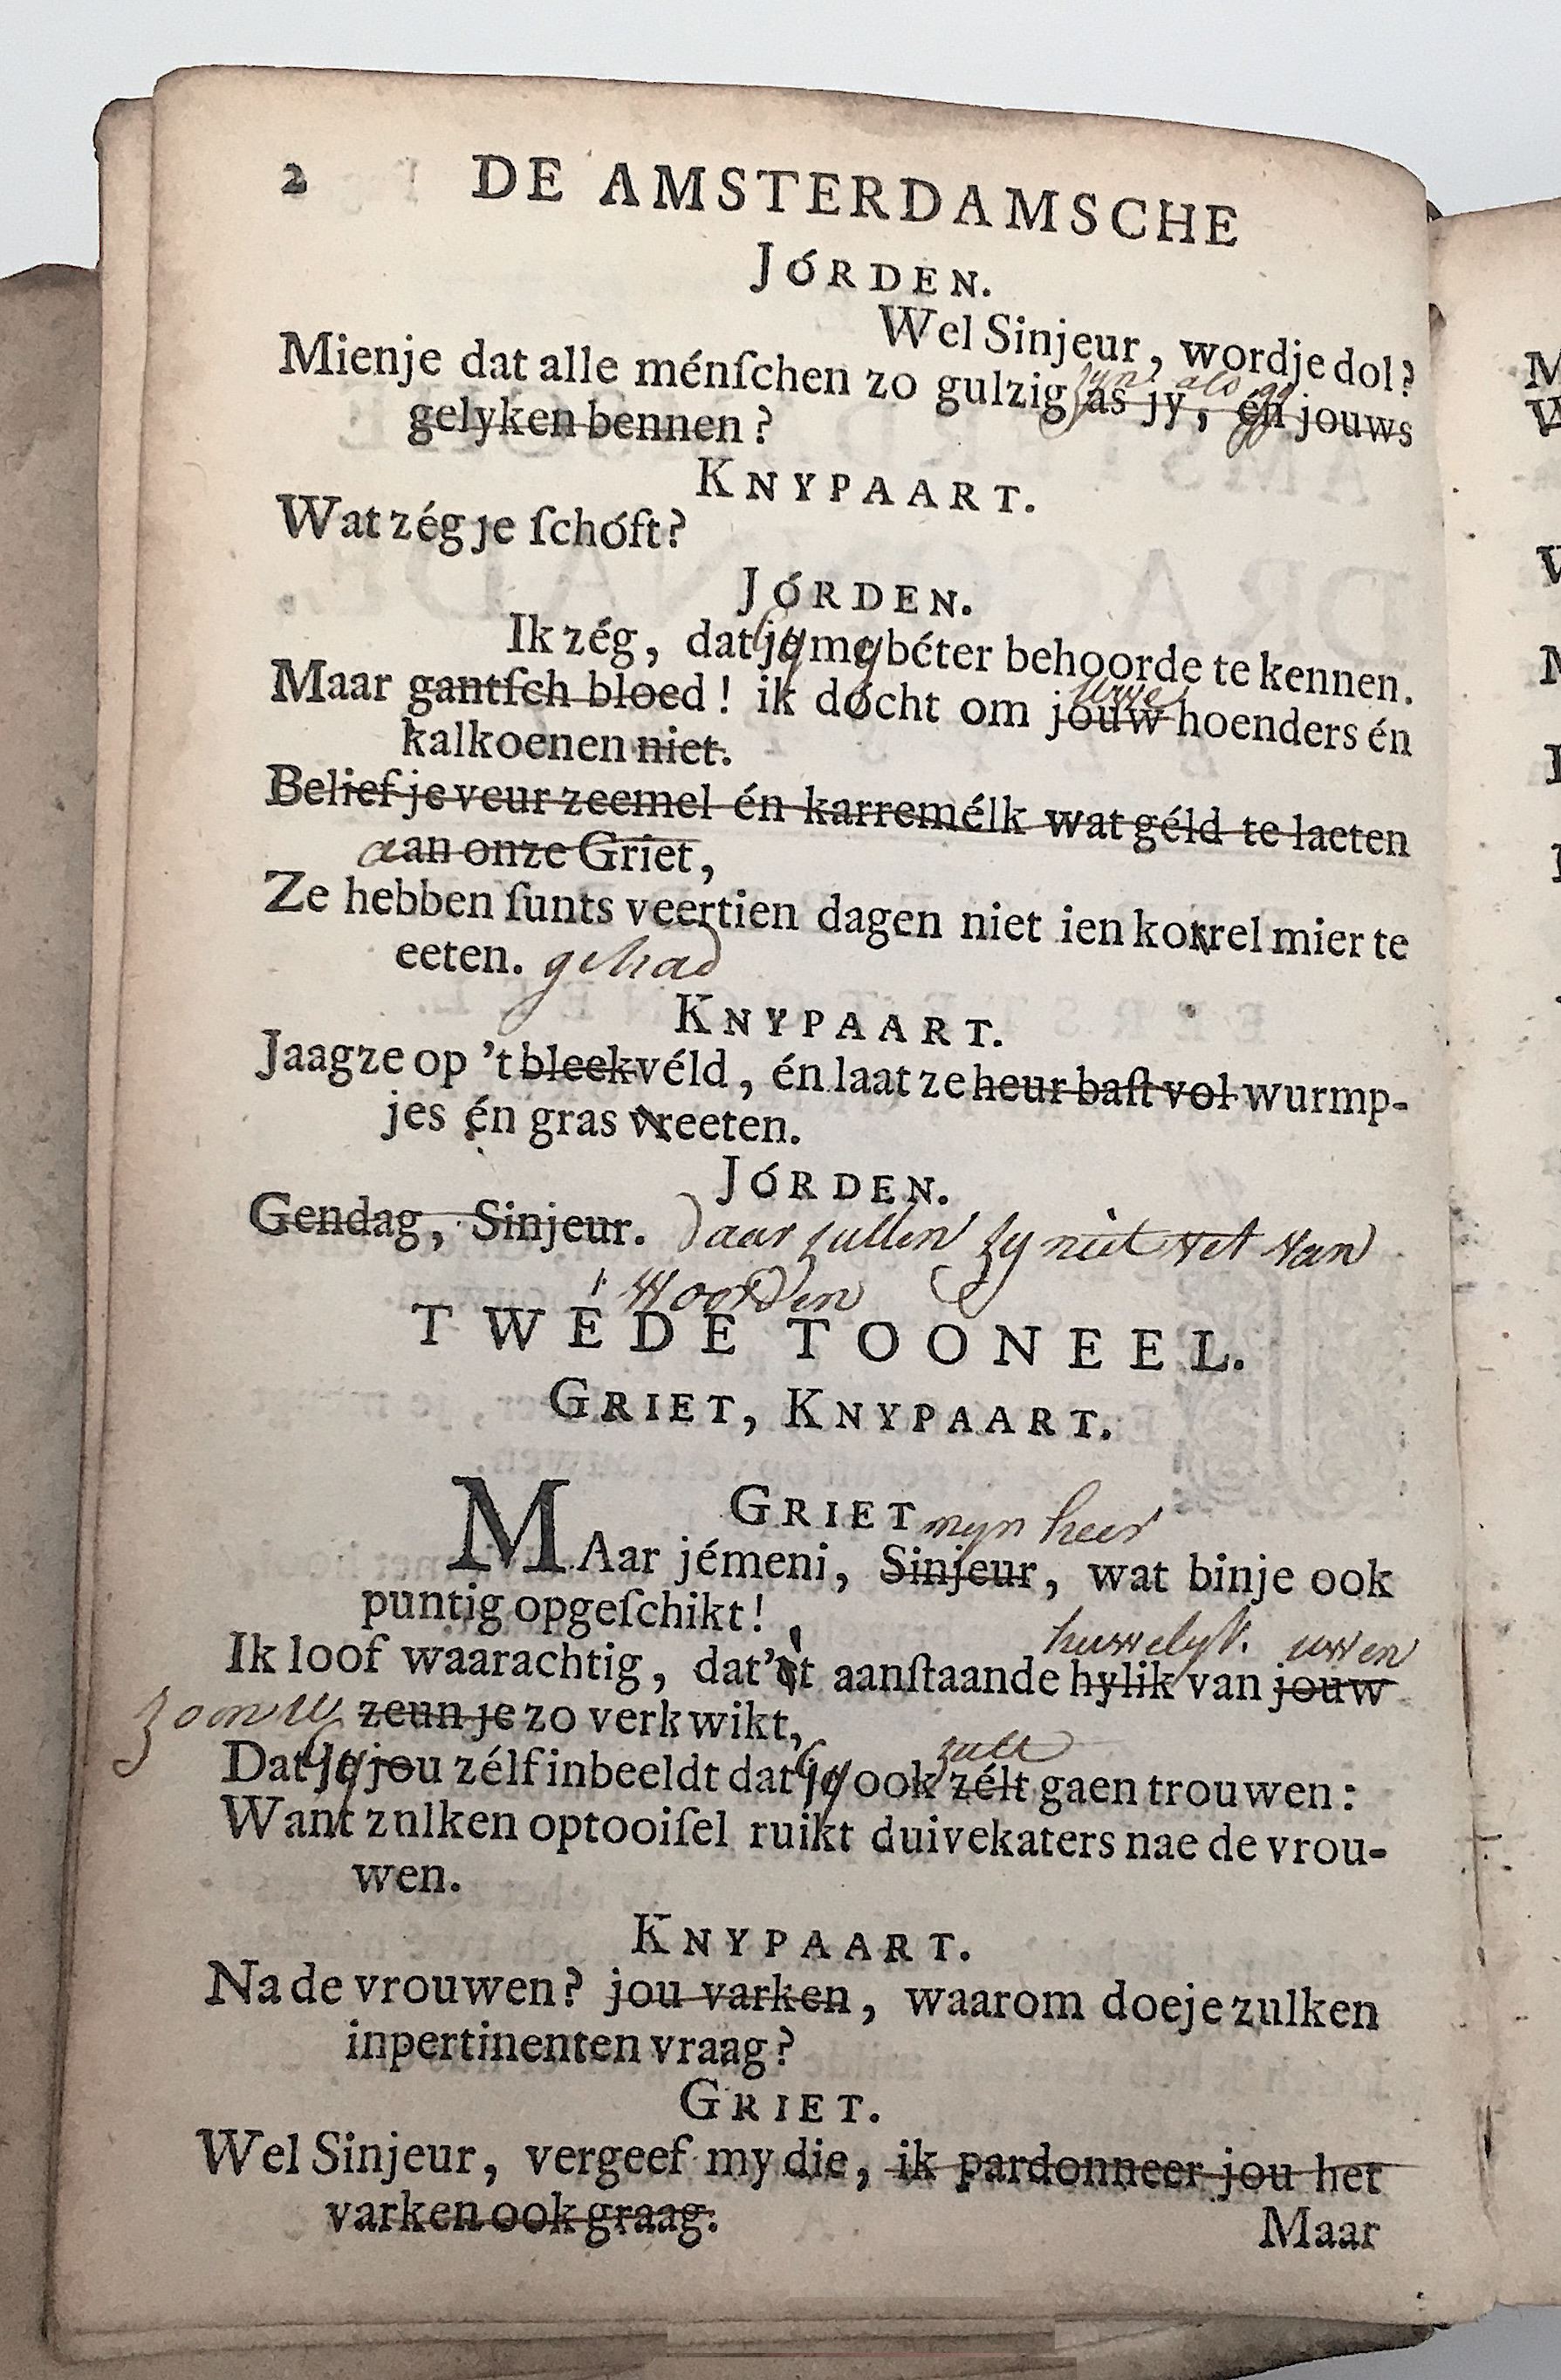 2 DE AMSTERDAMSCHE
JÓRDEN.
Wel Sinjeur, wordje dol?
Mienje dat alle ménſchen zo gulzig as jy, én jouws
zyn als gy
gelyken bennen?
KNYPAART.
Wat zég je ſchóft?
JÓRDEN.
Ik zég, dat gy my béter behoorde te kennen.
uwe
Maar gantſch bloed! ik dócht om jouw hoenders én
kalkoenen niet.
Belief je veur zeemel én karremélk wat géld te laeten
aan onze Griet,
Ze hebben ſunts veertien dagen niet ien korrel mier te
eeten. gehad
KNYPAART.
Jaagze op 't bleekvéld, én laat ze heur baſt vol wurmp-
jes én gras vreeten.
JÓRDEN.
Gendag, Sinjeur. Daar zullen zy niet vet van
woorden
TWEDE TOONEEL.
GRIET, KNYPAART.
GRIET myn heer
MAar jémeni, Sinjeur, wat binje ook
puntig opgeſchikt!
huwelyk. uwen
Ik loof waarachtig, dat't aanſtaande hylik van jouw
zoon u zeun je zo verkwikt,
zult
Dat gy jou zélf inbeeldt dat gy ook zélt gaen trouwen:
Want znlken optooiſel ruikt duivekaters nae de vrou-
wen.
KNYPAART.
Na de vrouwen? jou varken, waarom doeje zulken
inpertinenten vraag?
GRIET.
Wel Sinjeur, vergeef my die, ik pardonneer jou het
varken ook graag.
Maar